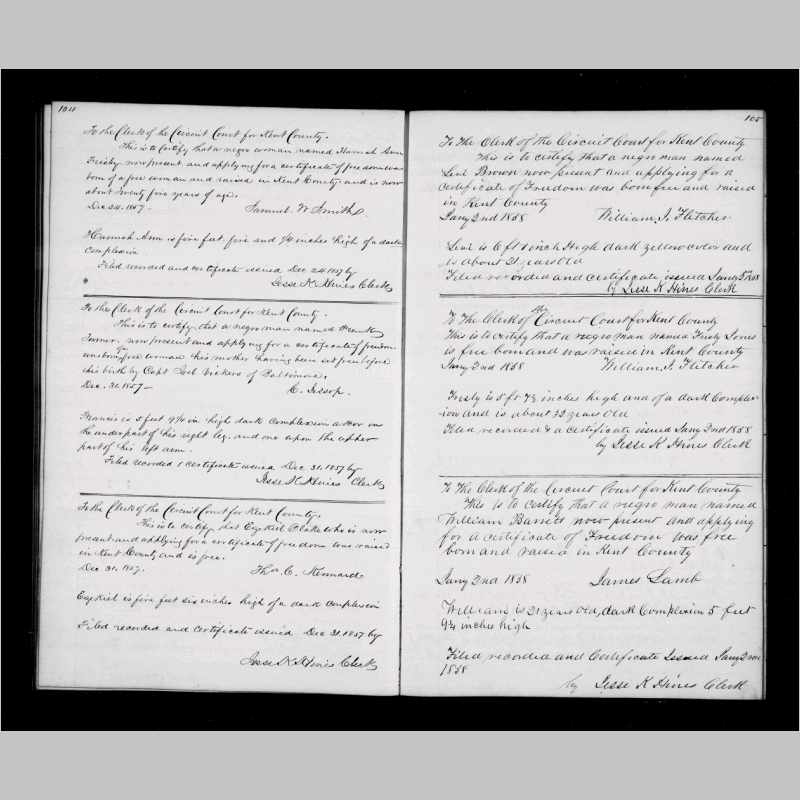 104
To the Clerk of the Circuit Court for Kent County.
This is to certify that a negro woman named Hannah Ann
Frisby now present and applying for a certificate of freedom was
born of a free woman and raised in Kent County and is now
about twenty five years of age.
Dec 24. 1857.
Samuel W Smith
Hannah Ann is five feet five and 1/4 inches high of a dark
complexion
Filed recorded and certificate issued Dec 24 1857 by
Jesse K Hines Clerk
To the Clerk of the Circuit Court for Kent County.
This is to certify that a negro man named
now present and applying for a certificate of freedom
was born of free woman his mother having been set free before
his birth by Capt Vickers of Baltimore.
Dec. 31. 1857
C. Jessop.
Francis is 5 feet 9 3/4 in high dark complexion a scar on
the under part of his right leg. and one upon the upper
part of his left arm.
Filed recorded & certificate issued Dec 31. 1857 by
Jesse K Hines Clerk
To the Clerk of the Circuit Court for Kent County.
This is to certify that Ezekiel Blake who is now
present and applying for a certificate of freedom was raised
in Kent County and is free.
Dec 31. 1857.
Thos. C. Kennard
Ezekiel is five feet six inches high of a dark complexion
Filed recorded and certificate issued Dec 31. 1857 by
Jesse K Hines Clerk
105
To The Clerk of the Circuit Court for Kent County
This is to certify that a negro man named
Levi Brown now present and applying for a
certificate of Freedom was born free and raised
in Kent County
Jany 2nd 1858
William J. Fletcher
Levi is 6 ft 1 inch High dark yellow color and
is about 21 years Old
Filed recorded and certificate issued Jany 1858
by Jesse K Hines Clerk
To The Clerk of the Circuit Court for Kent County
This is to certify that a negro man named Frisby Jones
is free born and was raised in Kent County
Jany 2nd 1858
William J. Fletcher
Frisby is 5 ft 7 1/2 inches high and of a dark Complex
ion and is about 33 years Old
Filed recorded & a certificate issued Jany 2nd 1858
by Jesse K Hines Clerk
To The Clerk of the Circuit Court for Kent County
This is to certify that a negro man named
William Barrett now present and applying
for a certificate of Freedom was free
born and raised in Kent County
Jany 2nd 1858
James Lamb
William is 21 years Old, dark Complexion 5 feet
9 1/4 inches high
Filed recorded and Certificate Issued Jany 2nd
1858
by Jesse K Hines Clerk